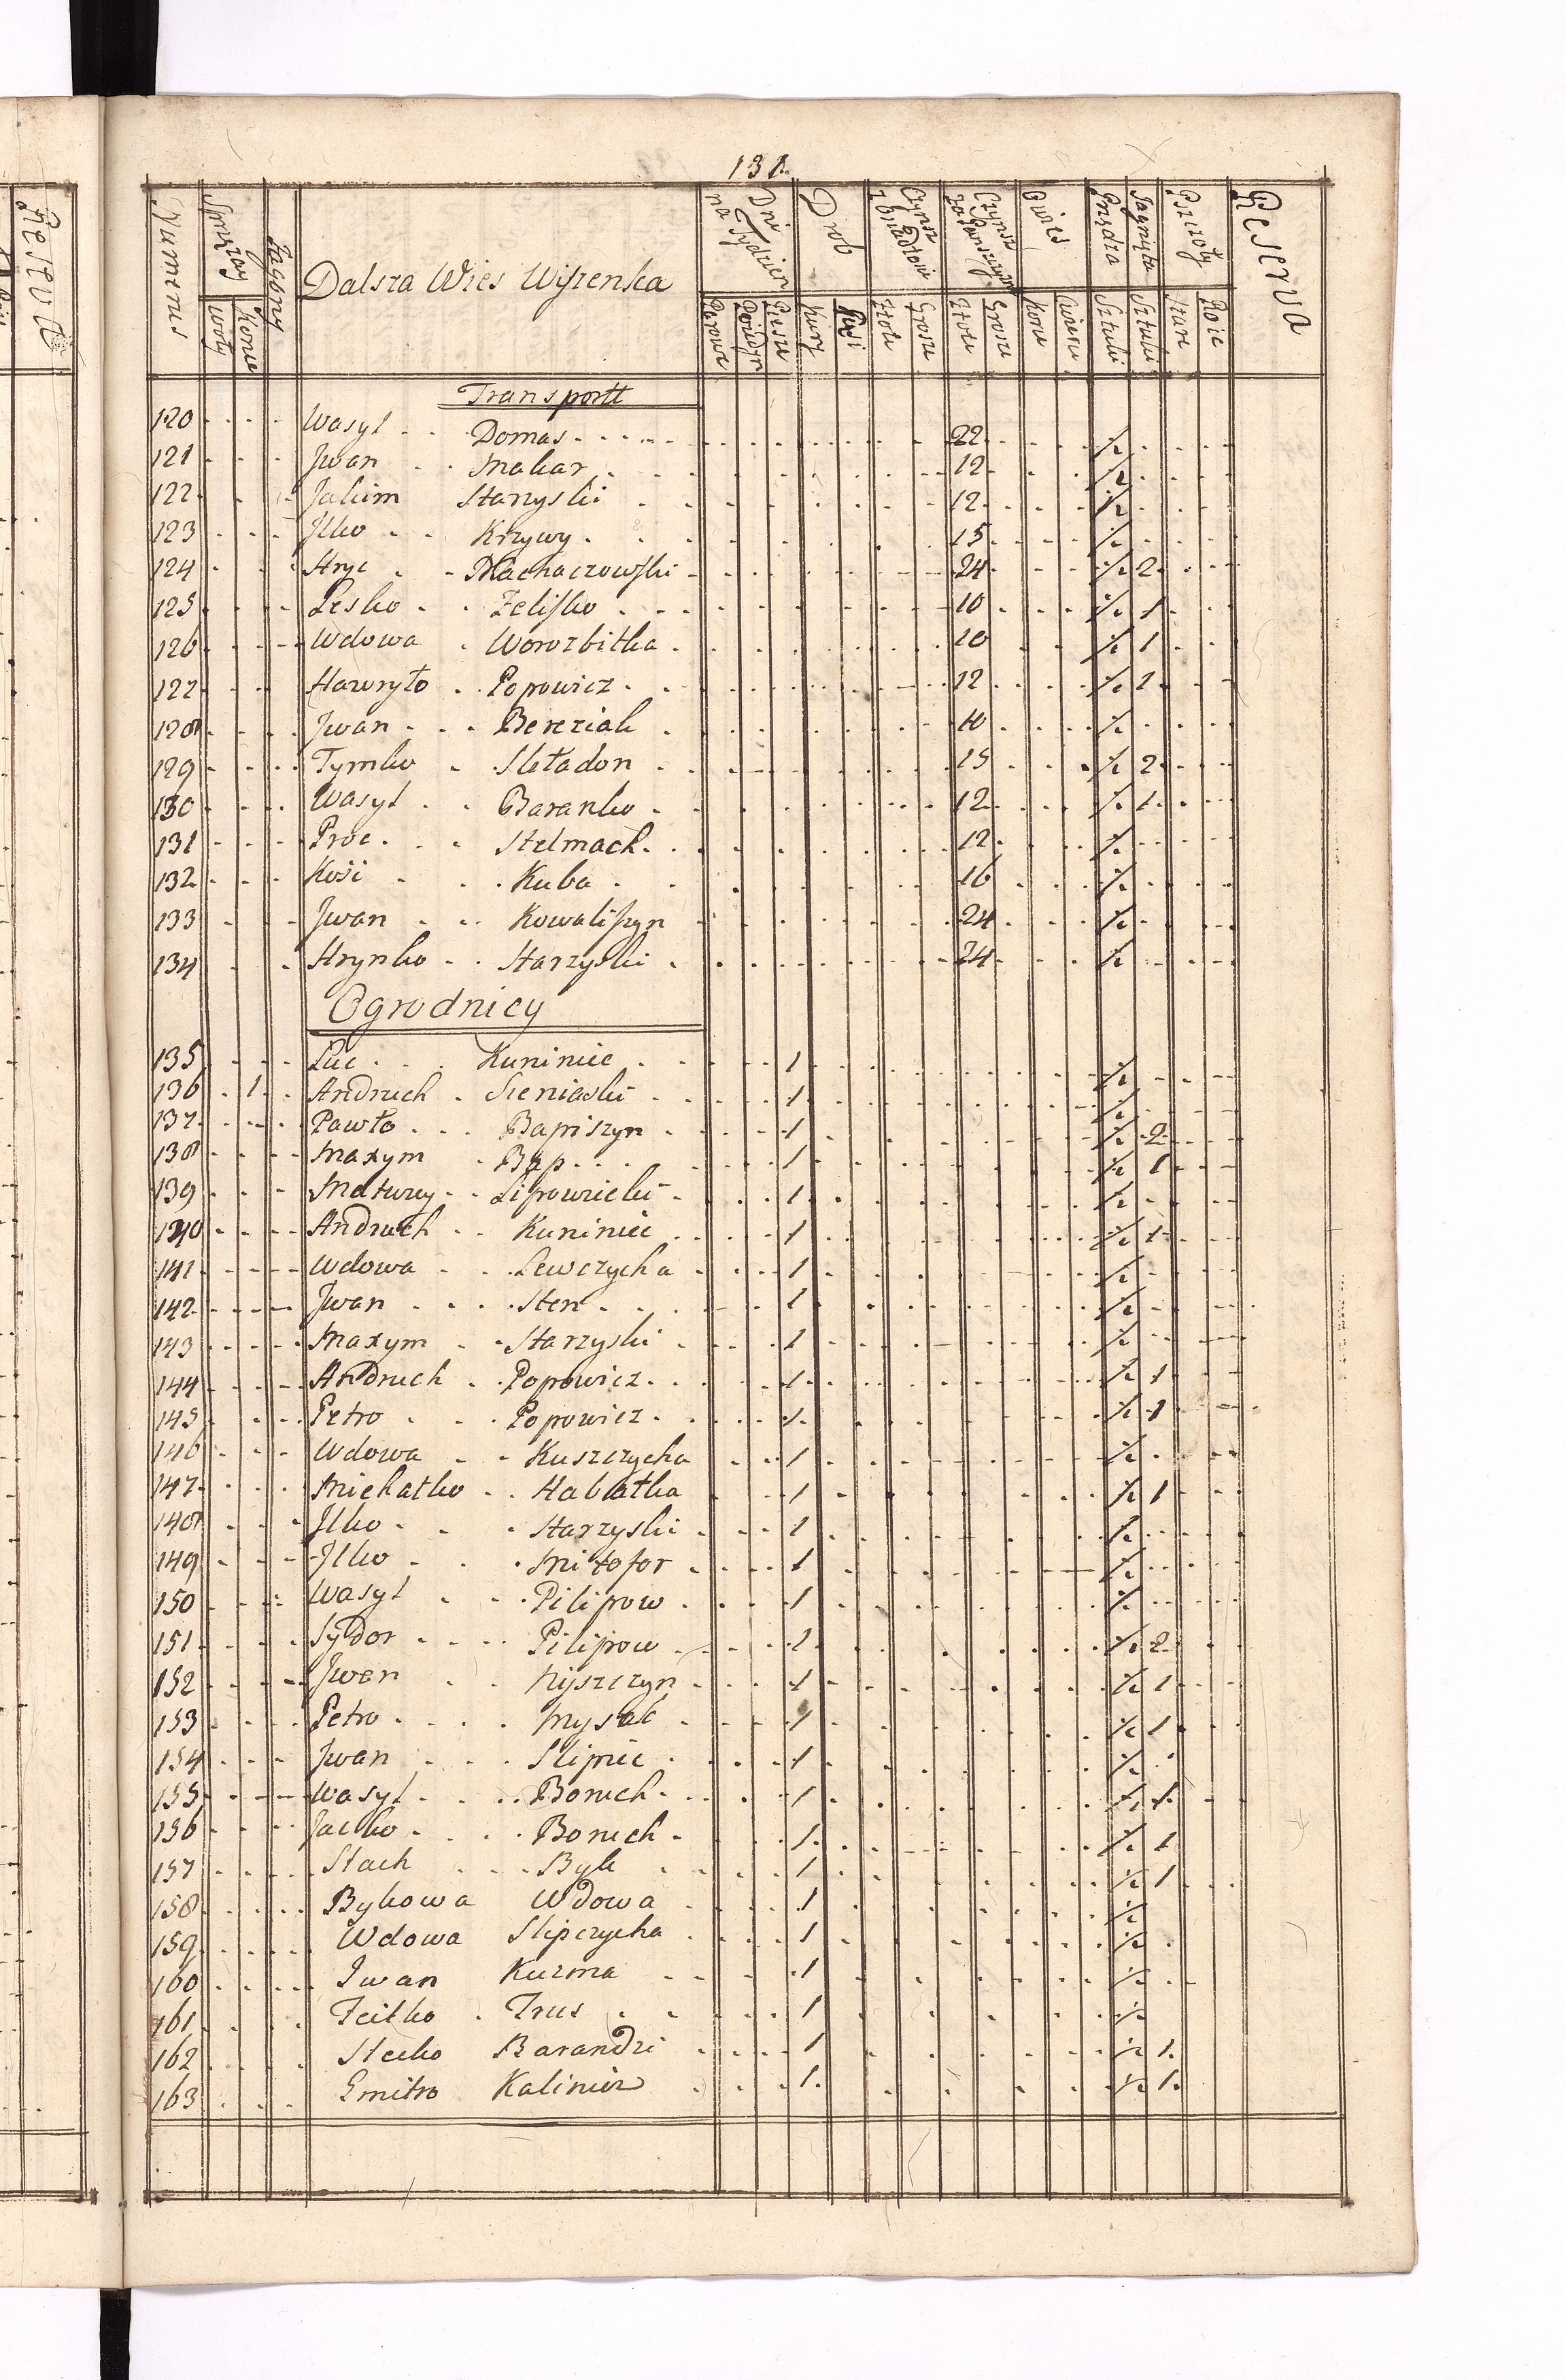 131.
Numerus
Sprzężay
Woły
Konie
Zagony
Dalsza Wies Wiszenka
Dni na Tydzien
Parowe
Poiedyn
Piesze
Drob
Kury
Gęsi
Czynsz
Złote
Grosze
Czynsz za Panszczyznę
Złote
Grosze
Owies
Korce
Cwierci
Przędza
Sztuki
Jagnięta
Sztuki
Pszczoły
Stare
Roie
Reserva
Transportt
120 Wasyl Domas 22 ½
121 Jwan Makar 12 ½
122 Jakim Starzyski 12 ½
123 Jlko Krzywy 15 ½
124 Hryc Machaczowski 24 ½ 2
125 Lesko Zelisko 10 ½ 1
126 Wdowa Worozbitka 20 ½ 1
127 Hawryło Popowicz 12 ½ 1
128 Jwan Bereziak 10 ½
129 Tymko Sletadon 15 ½ 2
130 Wasyl Baranko 12 ½ 1
131 Proc Stelmach 12 ½
132 Kośi Kuba 16 ½
133 Jwan Kowaliszyn 24 ½
134 Hrynko Starzyski 24 ½
Ogrodnicy
135 Luc Kuniniec 1 ½
136 1 Andruch Sieniaski 1 ½
137 Pawło Bapiszyn 1 ½ 2
138 Maxym Bap 1 ½ 1
139 Matwey Lipowiecki 1 ½
140 Andruch Kuniniec 1 ½ 1
141 Wdowa Lewczycha 1 ½
142 Jwan Sten 1 ½
143 Maxym Starzyski 1 ½
144 Andruch Popowicz 1 ½ 1
145 Petro Popowicz 1 ½ 1
146 Wdowa Kuszczycha 1 ½
147 Michałko Habłatka 1 ½ 1
148 Jlko Starzyski 1 ½
149 Jlko Mitofor 1 ½
150 Wasyl Pilipow 1 ½
151 Sydor Pilipow 1 ½ 2
152 Jwan Hyszczyn 1 ½ 1
153 Petro Mysak 1 ½ 1
154 Jwan Slipiec 1 ½
155 Wasyl Boruch 1 ½ 1
156 Jacko Boruch 1 ½ 1
157 Stach Byk 1 ½ 1
158 Bykowa Wdowa 1 ½
159 Wdowa Slipczycha 1 ½
160 Iwan Kuzma 1 ½
161 Feitko Trus 1 ½
162 Stecko Barandzi 1 ½ 1
163 Dmitro Kalinicz 1 ½ 1